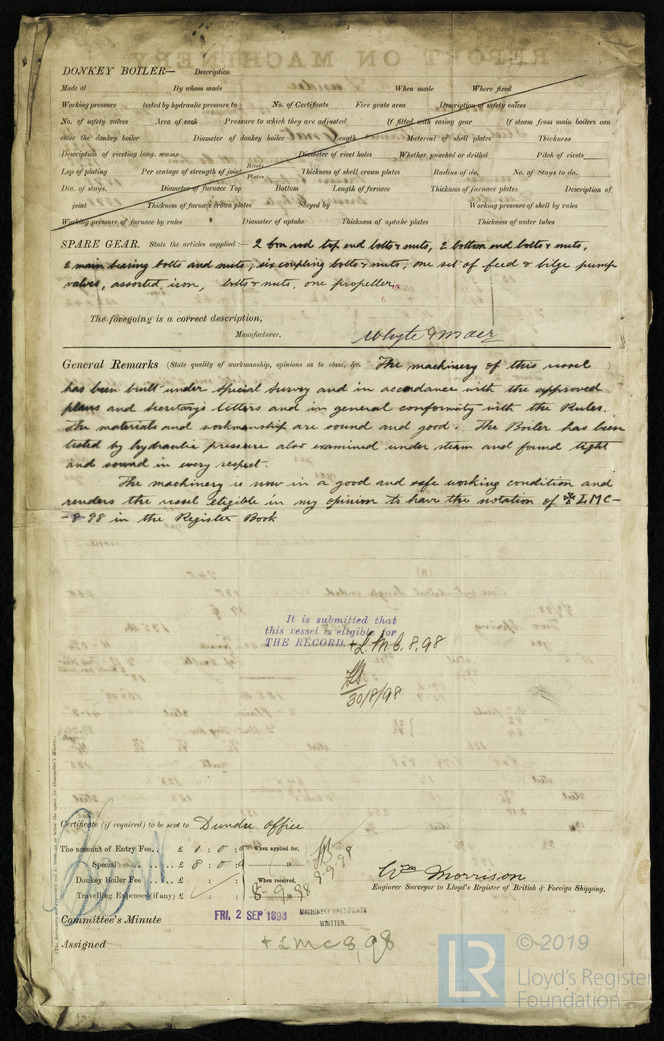 DONKEY BOILER— Description
Made at By whom made When made Where fixed
Working pressure tested by hydraulic pressure to No. of Certificate Fire grate area Description of safety valves
No. of safety valves Area of each Pressure to which they are adjusted If fitted with easing gear If steam from main boilers can
enter the donkey boiler Diameter of donkey boiler Length Material of shell plates Thickness
Description of riveting long. seams Diameter of rivet holes Whether punched or drilled Pitch of rivets
Lap of plating Per centage of strength of joint Rivets Plates Thickness of shell crown plates Radius of do. No. of Stays to do.
Dia. of stays. Diameter of furnace Top Bottom Length of furnace Thickness of furnace plates Description of
joint Thickness of furnace crown plates Stayed by Working pressure of shell by rules
Working pressure of furnace by rules Diameter of uptake Thickness of uptake plates Thickness of water tubes
SPARE GEAR. State the articles supplied:— 2 con rod top end bolts & nuts, 2 bottom end bolts & nuts,
2 main bearing bolts and nuts, six coupling bolts & nuts, one set of feed & bilge pump
valves, assorted iron, bolts & nuts, one propeller.
The foregoing is a correct description,
Manufacturer. Whyte & Mair
General Remarks (State quality of workmanship, opinions as to class, &c. The machinery of this vessel
has been built under special survey and in accordance with the approved
plans and Secretary's letters and in general conformity with the Rules.
The materials and workmanship are sound and good. The Boiler has been
tested by hydraulic pressure also examined under steam and found tight
and sound in every respect.
The machinery is now in a good and safe working condition and
renders the vessel eligible in my opinion to have the notation of ✠ LMC-
-8-98 in the Register Book
It is submitted that
this vessel is eligible for
THE RECORD. + L.M.C. 8.98
30/8/98
Certificate (if required) to be sent to Dundee Office
The amount of Entry Fee. £ 1 : 0 : 0 When applied for,
Special £ 8 : 0 : 0
Donkey Boiler Fee £ When received,
Travelling Expenses (if any) £ 8-9-98
Wm Morrison
Engineer Surveyor to Lloyd's Register of British & Foreign Shipping.
Committee's Minute FRI. 2 SEP 1898 MACHINERY CERTIFICATE
WRITTEN.
Assigned + LMC 8,98
LR © 2019
Lloyd's Register
Foundation